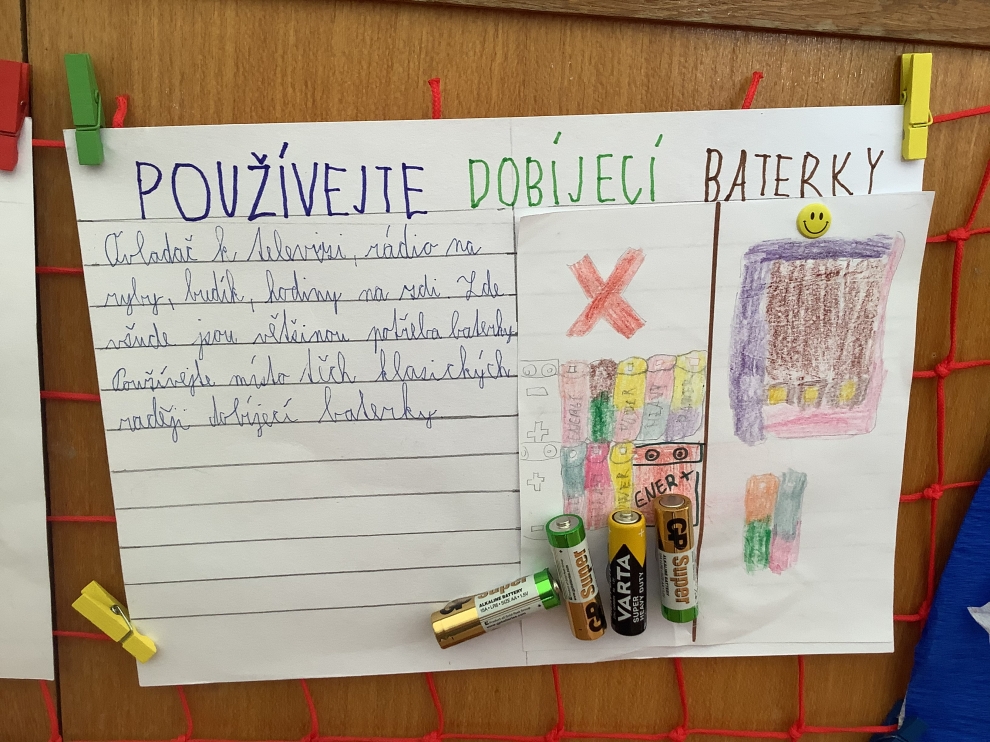 POUŽÍVEJTE DOBÍJECÍ BATERKY
Ovladač k televizi, rádio na
ryby, budík, hodiny na zdi. Zde
všude jsou většinou potřeba baterky
Používejte místo těch klasických
raději dobíjecí baterky
ENER+
ALKALINE BATTERY
GP Super
VARTA
SUPER
HEAVY DUTY
GP Super